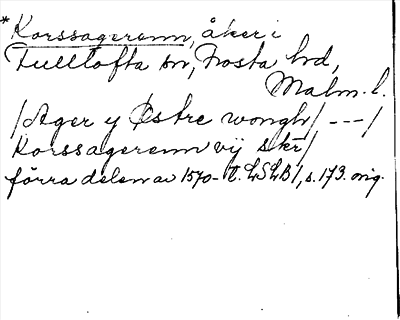 *Korssagerenn, åker i
Fulltofta sn, Frosta hd,
Malm. l.
/Ager y Østre wongh/ --- /
Korssagerenn vij skr/
förra delen av 1570-t. LSLB 1, s. 173. orig.